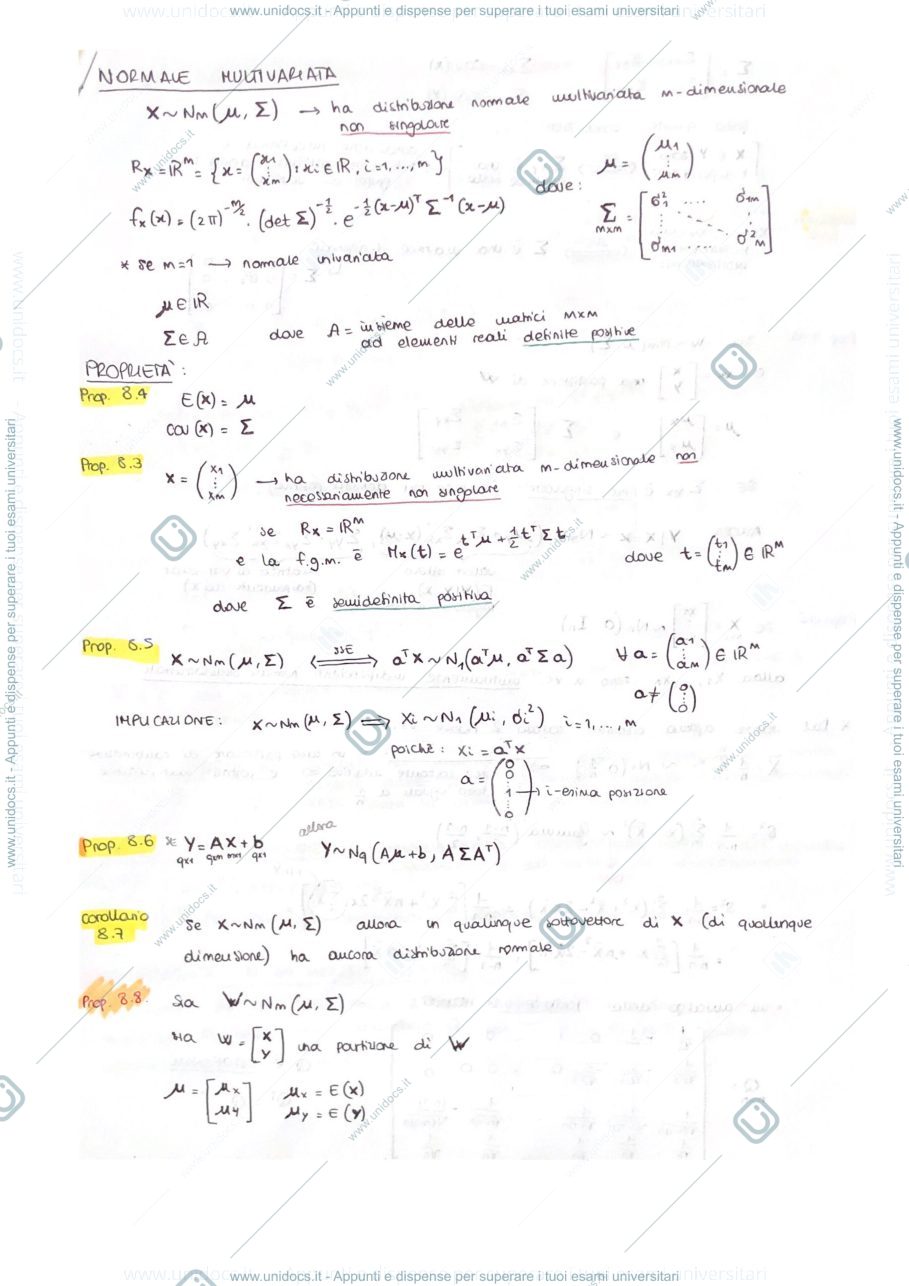 www.unidocs.it - Appunti e dispense per superare i tuoi esami universitari
NORMALE MULTIVARIATA
X ~ Nm (μ, Σ) → ha distribuzione normale multivariata m-dimensionale
non singolare
Rx = ℝ^m = { x = (x1 ⋮ xm) : xi ∈ ℝ, i=1,...,m }
dove : μ = (μ1 ⋮ μm)
fx(x) = (2π)^(-m/2) · (det Σ)^(-1/2) · e^(-1/2 (x-μ)^T Σ^-1 (x-μ))
Σ mxm = [σ²1 .... σ1m ⋮ σm1 .... σ²m]
* se m=1 → normale univariata
μ ∈ ℝ
Σ ∈ A dove A = insieme delle matrici mxm
ad elementi reali definite positive
PROPRIETA' :
Prop. 8.4 E(x) = μ
cov (x) = Σ
Prop. 8.3 x = (x1 ⋮ xm) → ha distribuzione multivariata m-dimensionale non
necessariamente non singolare
se Rx = ℝ^m
e la f.g.m. è Mx(t) = e^(t^T μ + 1/2 t^T Σ t) dove t = (t1 ⋮ tm) ∈ ℝ^m
dove Σ è semidefinita positiva
Prop. 8.5 X ~ Nm (μ, Σ) ⟺ SSE a^T X ~ N1 (a^T μ, a^T Σ a) ∀ a = (a1 ⋮ am) ∈ ℝ^m
a ≠ (0 ⋮ 0)
IMPLICAZIONE : X ~ Nm (μ, Σ) ⟹ Xi ~ N1 (μi, σi²) i=1,...,m
poichè : xi = a^T x
a = (0 0 ⋮ 1 ⋮ 0) → i-esima posizione
Prop. 8.6 se Y = AX + b allora Y ~ Nq (Aμ + b, A Σ A^T)
qx1 qxm mx1 qx1
corollario 8.7 Se X ~ Nm (μ, Σ) allora un qualunque sottovettore di X (di qualunque
dimensione) ha ancora distribuzione normale
Prop. 8.8. Sia W ~ Nm (μ, Σ)
sia W = [x y] una partizione di W
μ = [μx μy] μx = E(x)
μy = E(y)
www.unidocs.it - Appunti e dispense per superare i tuoi esami universitari